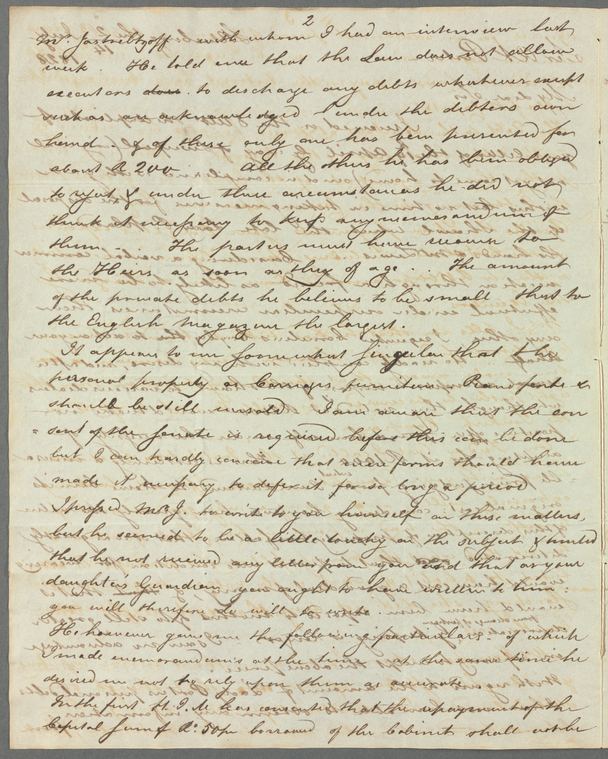 2
with whom I had an interview last
week. He told me that the Law does not allow
executors to discharge any debts whatever except
such as are acknowledged under the debtors own
hand. & of these only one has been presented for
about R. 200. All the others he has been obliged
to reject & under these circumstances he did not
think it necessary to keep any memorandum of
them. The parties must have recourse to
the Heirs as soon as they of age.. The amount
of the private debts he believes to be small that to
the English Magazine the largest.
It appears to me somewhat singular that the
personal property as Carriages, furniture Piano forte &
should be still unsold I am aware that the con
= sent of the Senate is required before this can be done
but I can hardly conceive that mere forms should have
made it necessary to defer it for so long a period
I pressed Mr. J. to write to you himself on these matters,
but he seemed to be a little touchy on the subject & hinted
that he not received any letter from you and that as your
daughter's Guardian you ought to have written to him:
you will therefore do well to write.
He however gave me the following particulars of which
I made memorandums at the time, at the same time he
desired me not to rely upon them as accurate
In the first H. I. M. has consented that the repayment of the
Capital Sum of R. borrowed of the Cabinet shall not be